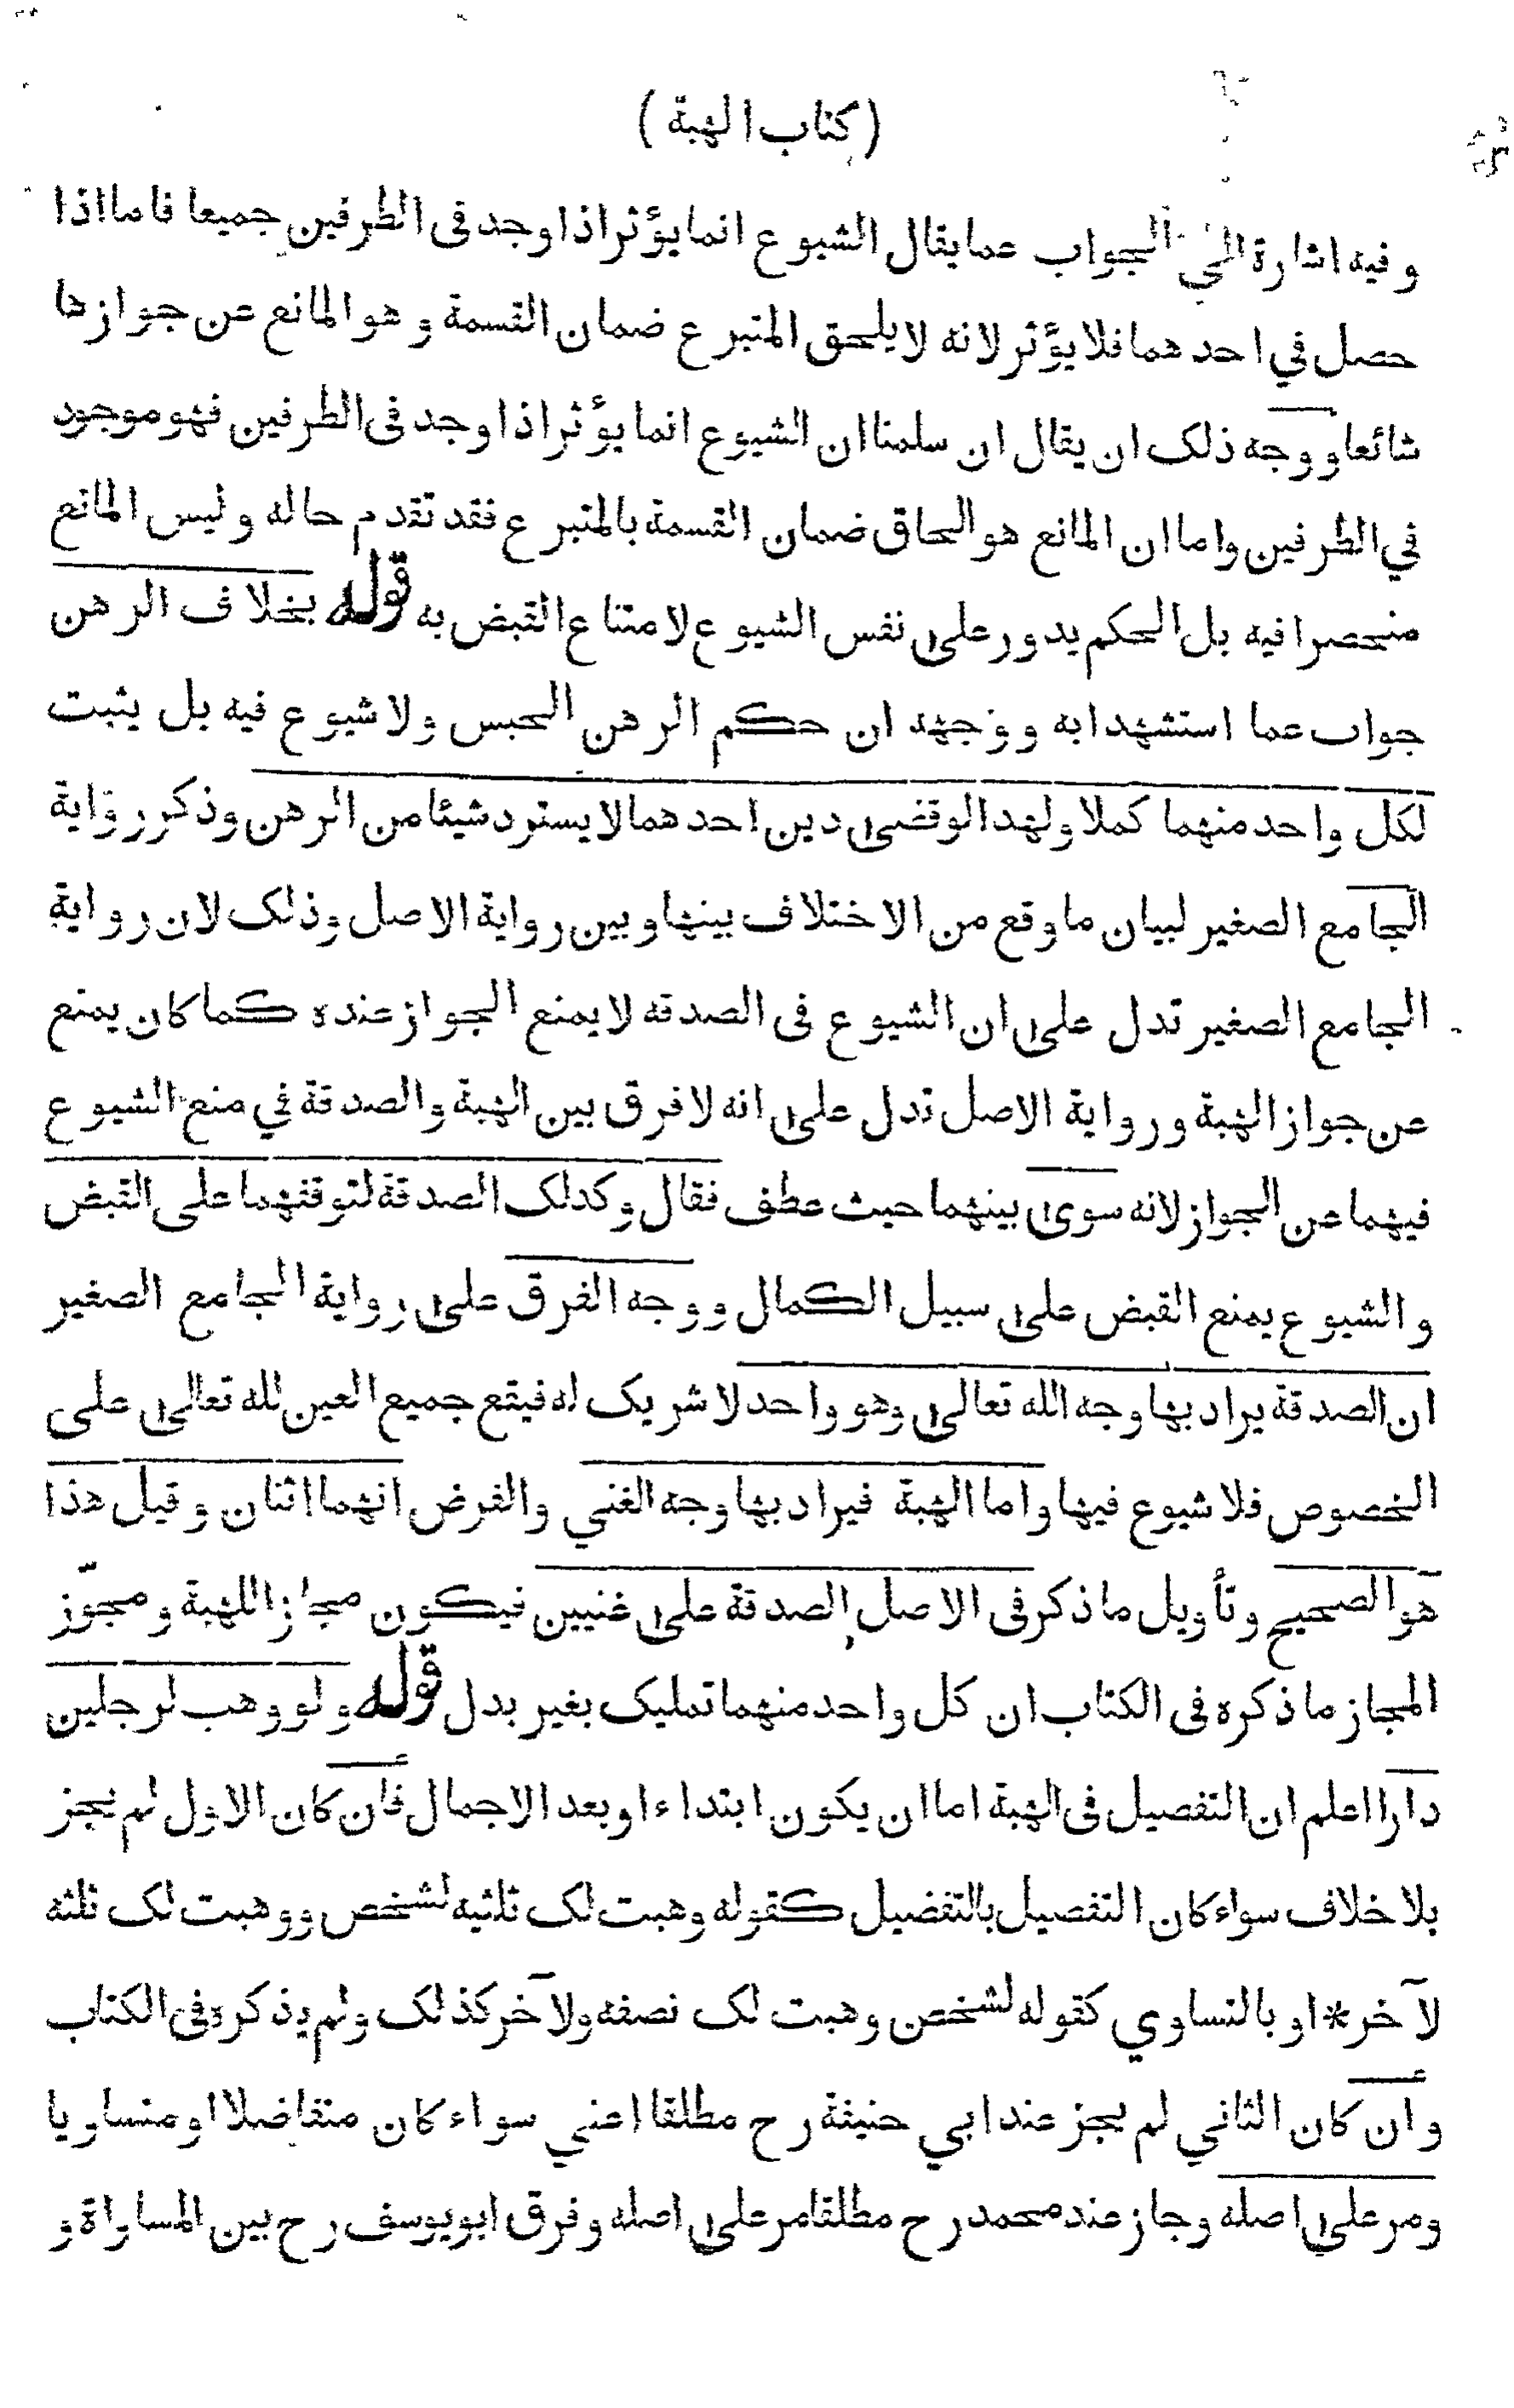 (كتاب الهبة)
وفيه اشارة الى الجواب عما يقال الشيوع انما يؤثر اذا وجد فى الطرفين جميعا فاما اذا
حصل في احدهما فلا يؤثر لانه لا يلحق المتبرع ضمان القسمة وهو المانع عن جوازها
شائعا ووجه ذلك ان يقال ان سلمنا ان الشيوع انما يؤثر اذا وجد فى الطرفين فهو موجود
في الطرفين واما ان المانع هو الحاق ضمان القسمة بالمتبرع فقد تقدم حاله وليس المانع
منحصرا فيه بل الحكم يدور على نفس الشيوع لامتناع القبض به قوله بخلاف الرهن
جواب عما استشهدا به ووجهه ان حكم الرهن الحبس ولا شيوع فيه بل يثبت
لكل واحد منهما كملا ولهذا لو قضى دين احدهما لا يسترد شيئا من الرهن وذكر رواية
الجامع الصغير لبيان ما وقع من الاختلاف بينها وبين رواية الاصل وذلك لان رواية
الجامع الصغير تدل على ان الشيوع فى الصدقه لا يمنع الجواز عنده كما كان يمنع
عن جواز الهبة ورواية الاصل تدل على انه لا فرق بين الهبة والصدقة في منع الشيوع
فيهما عن الجواز لانه سوى بينهما حيث عطف فقال وكدلك الصدقة لتوقفهما على القبض
والشيوع يمنع القبض على سبيل الكمال ووجه الفرق على رواية الجامع الصغير
ان الصدقة يراد بها وجه الله تعالى وهو واحد لا شريك له فيقع جميع العين لله تعالى على
الخصوص فلا شيوع فيها واما الهبة فيراد بها وجه الغني والفرض انهما اثنان وقيل هذا
هو الصحيح وتأويل ما ذكر فى الاصل الصدقة على غنيين فيكون مجازا للهبة ومجوّز
المجاز ما ذكره فى الكتاب ان كل واحد منهما تمليك بغير بدل قوله ولو وهب لرجلين
دارا اعلم ان التفصيل فى الهبة اما ان يكون ابتداء او بعد الاجمال فأن كان الاول لم يجز
بلا خلاف سواء كان التفصيل بالتفضيل كقوله وهبت لك ثلثيه لشخص ووهبت لك ثلثه
لآخر* او بالتساوي كقوله لشخص وهبت لك نصفه ولآخر كذلك ولم يذكره فى الكتاب
وأن كان الثاني لم يجز عند ابي حنيفة رح مطلقا اعني سواء كان متفاضلا او متساويا
ومر على اصله وجاز عند محمد رح مطلقا مر على اصله وفرق ابو يوسف رح بين المساواة و